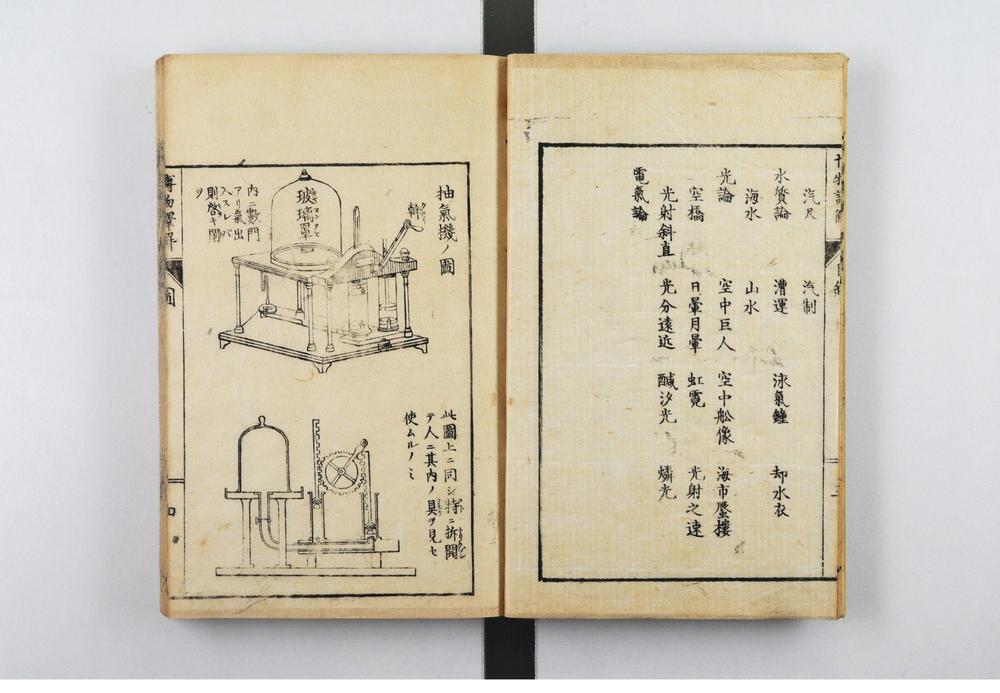 汽尺 汽制
水質論 漕運 泳氣鐘 却水衣
海水 山水
光論 空中巨人 空中舩像 海市蜃樓
空橋 日暈月暈 虹霓 光射之速
光射斜直 光分遠近 醎汐光 燐光
電氣論
抽氣機ノ圖
玻璃罩
内ニ數門
アリ氣出
入スレバ
則啓キ閉
ツ
此圖上ニ同シ特ニ拆開
テ人ニ其内ノ具ヲ見セ
使ムルノミ